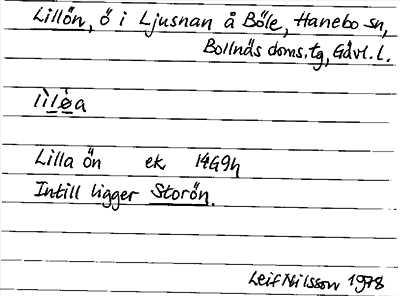 Lillön, ö i Ljusnan å Böle, Hanebo sn,
Bollnäs doms.tg, Gävl. l.
lìløa
Lilla ön ek 14G9h
Intill ligger Storön.
Leif Nilsson 1978